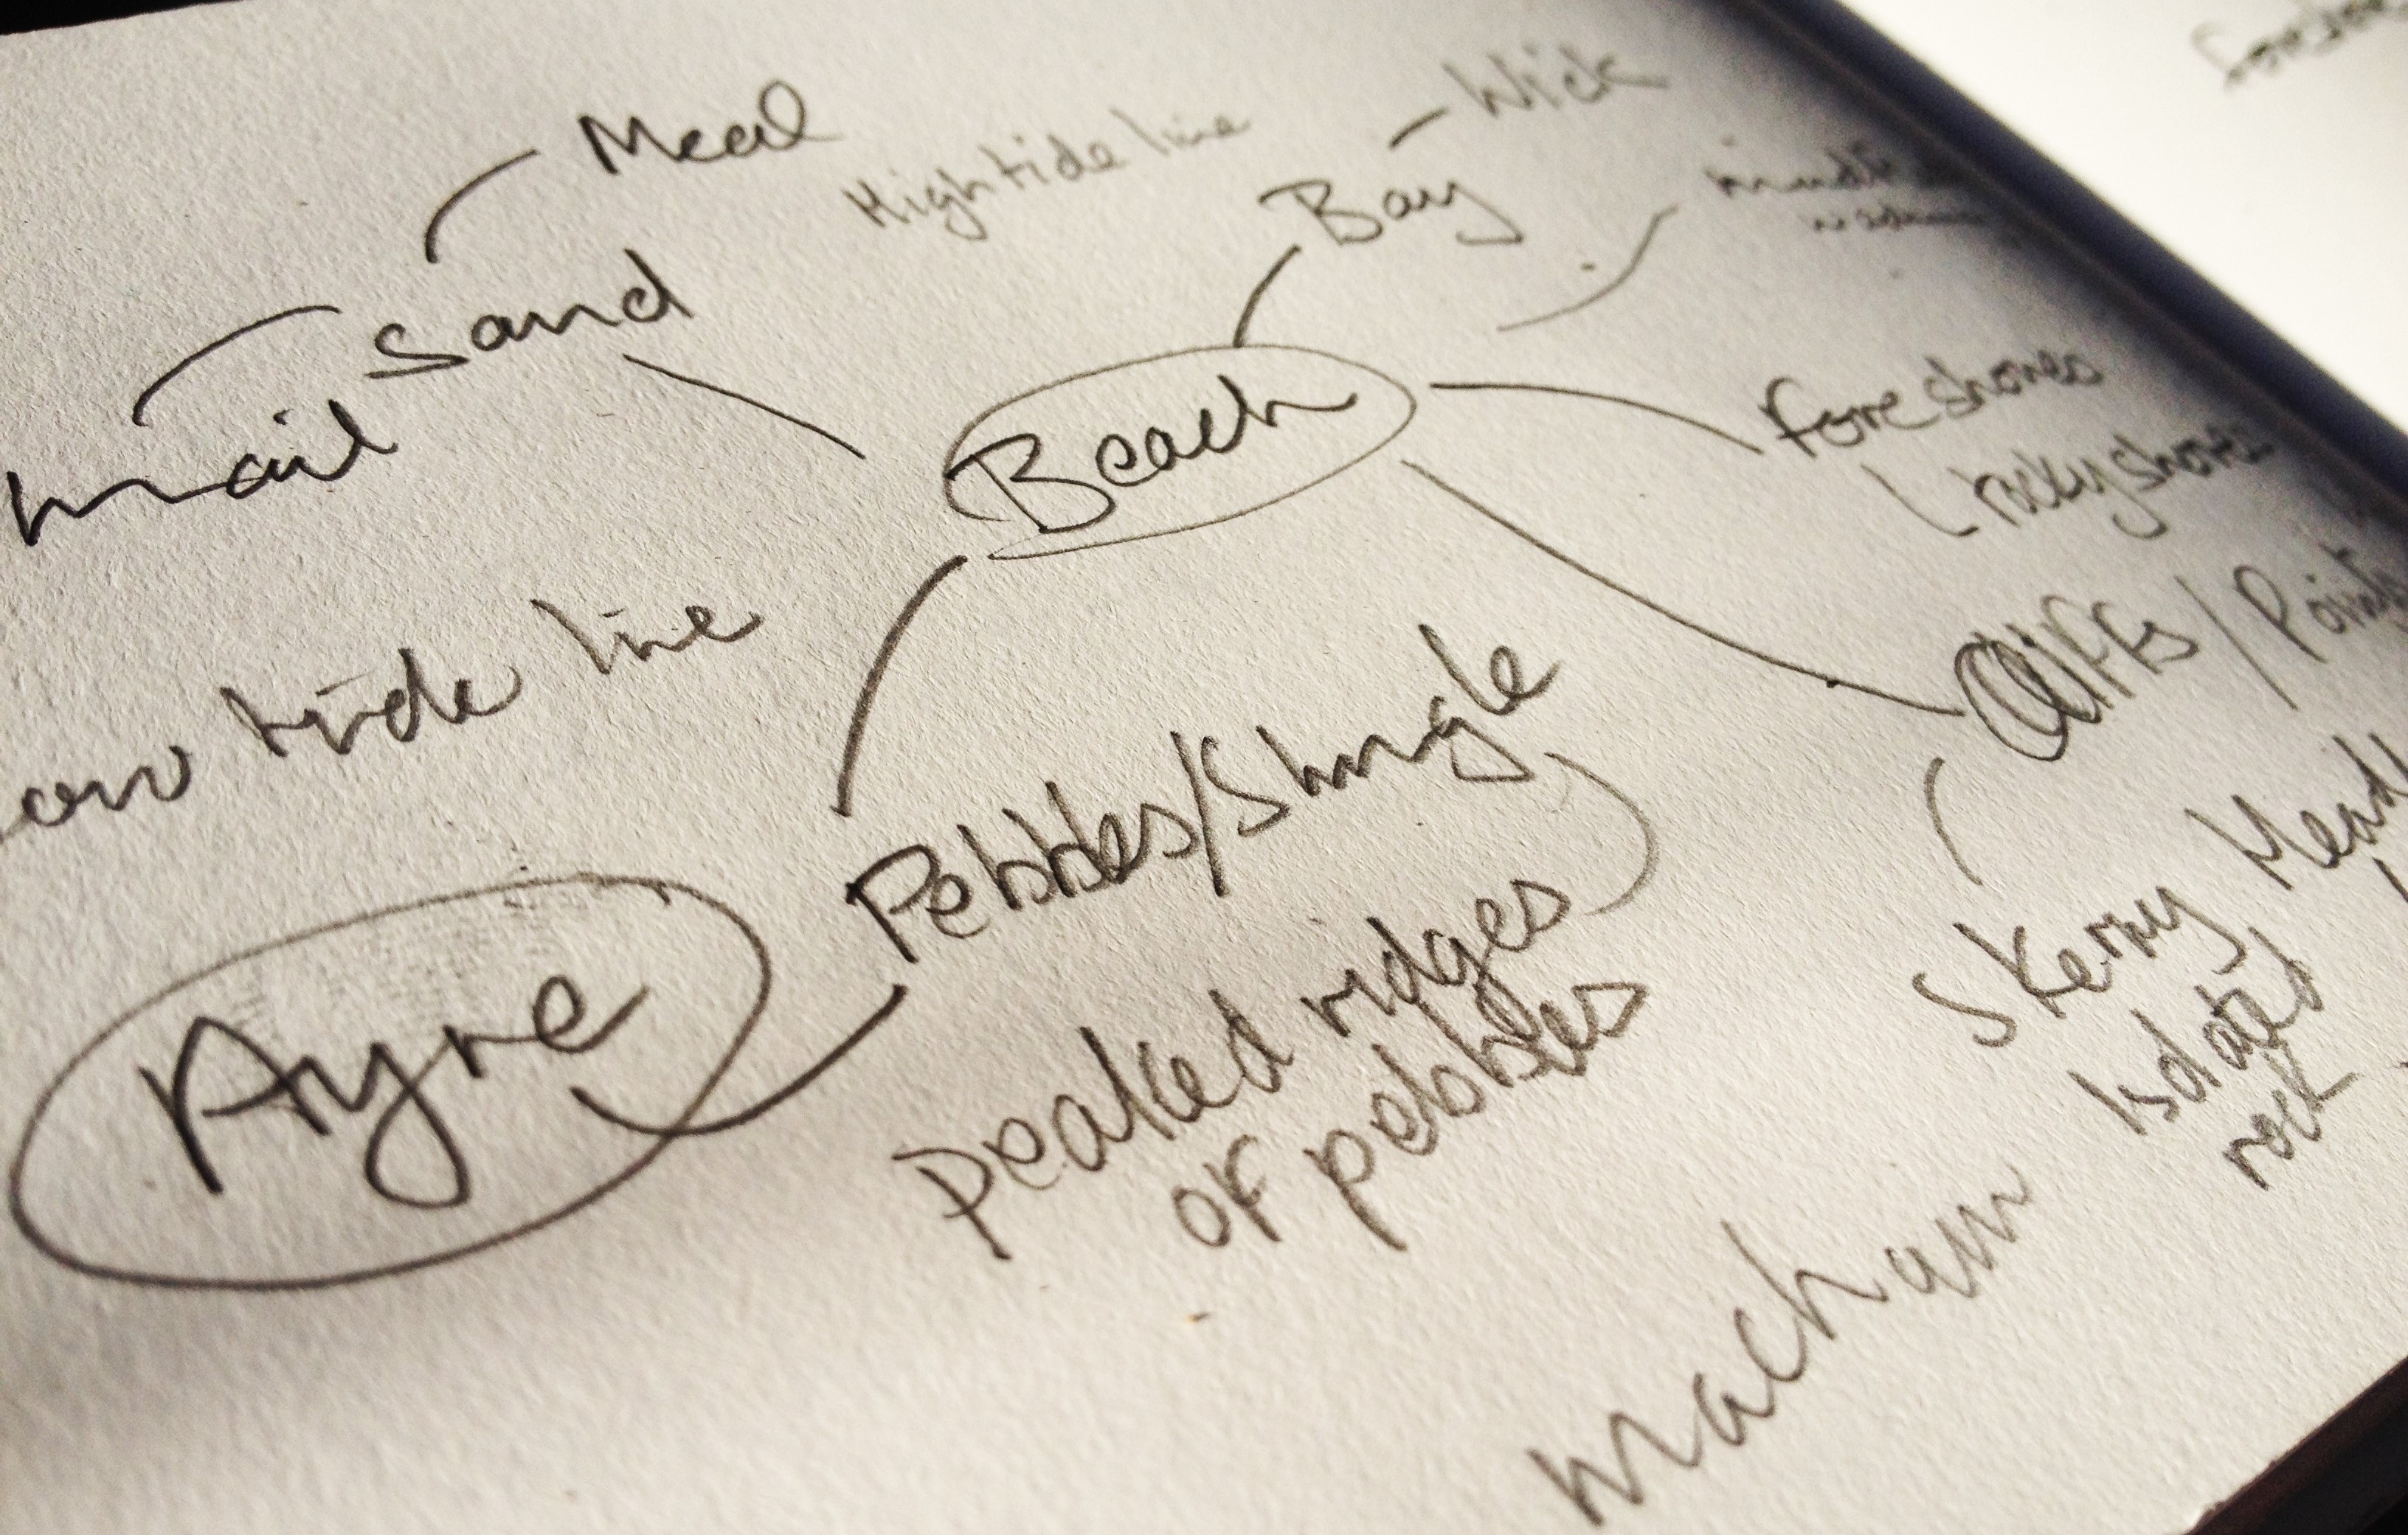 Meal
High tide line
Wick
Bay
Sand
mail
Beach
foreshores
rocky shores
tide line
Cliffs / Point
Pebbles/Shingle
Ayre
peaked ridges
of pebbles
Skerry
Isolated
rock
machair